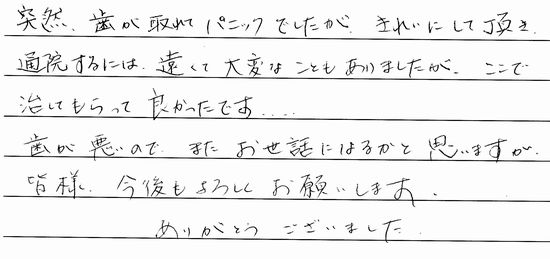 突然、歯が取れてパニックでしたが、きれいにして頂き、
通院するには、遠くて大変なこともありましたが、ここで
治してもらって良かったです....
歯が悪いので、またお世話になるかと思いますが、
皆様、今後もよろしくお願いします。
ありがとうございました。